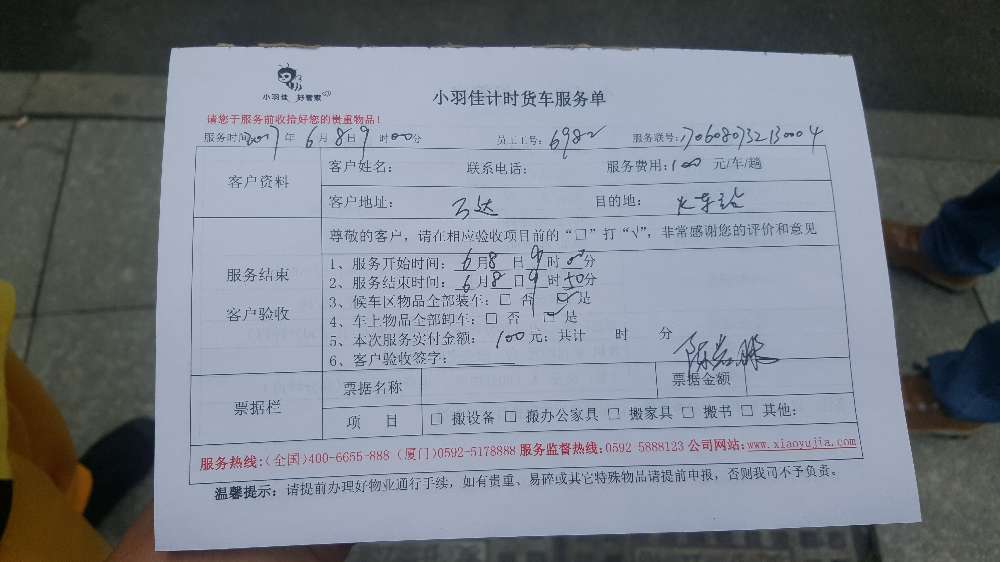 小羽佳 好管家
小羽佳计时货车服务单
请您于服务前收拾好您的贵重物品！
服务时间2017年6月8日9时00分 员工工号：6982 服务联号：1706080732130004
客户资料
客户姓名： 联系电话： 服务费用：100 元/车/趟
客户地址：万达 目的地：火车站
服务结束
客户验收
尊敬的客户，请在相应验收项目前的“□”打“√”，非常感谢您的评价和意见
1、服务开始时间：6月8日9时00分
2、服务结束时间：6月8日9时50分
3、候车区物品全部装车：□ 否 ☑是
4、车上物品全部卸车：□ 否 ☑是
5、本次服务实付金额：100元；共计 时 分
6、客户验收签字：
票据栏
票据名称 票据金额
项 目 □ 搬设备 □ 搬办公家具 □ 搬家具 □ 搬书 □ 其他：
服务热线：（全国）400-6655-888（厦门）0592-5178888 服务监督热线：0592 5888123 公司网站：www.xiaoyujia.com
温馨提示：请提前办理好物业通行手续，如有贵重、易碎或其它特殊物品请提前申报，否则我司不予负责。